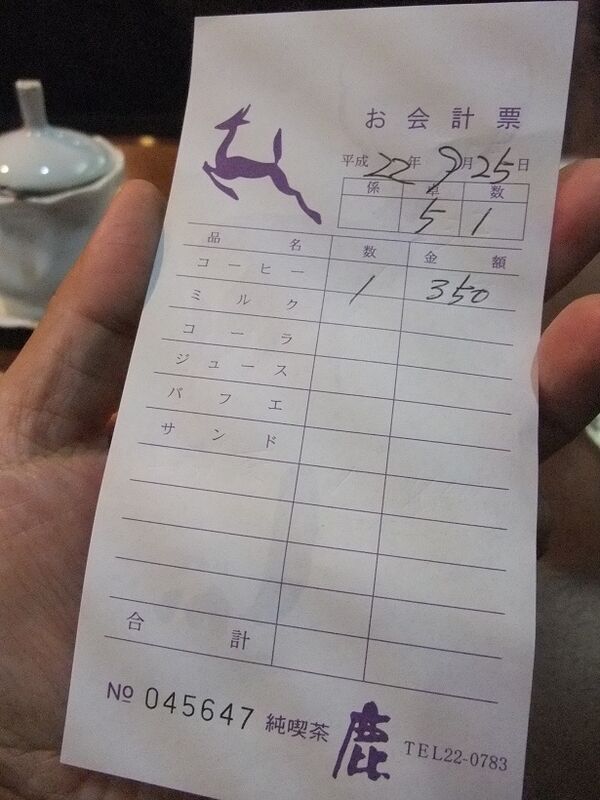 お会計票
平成22年9月25日
係 卓 数
5 1
品名 数 金額
コーヒー 1 350
ミルク
コーラ
ジュース
パフエ
サンド
合計
No 045647 純喫茶 鹿 TEL22-0783